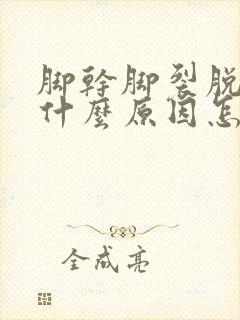 脚幹脚裂脱
什麼原因怎
全成亮